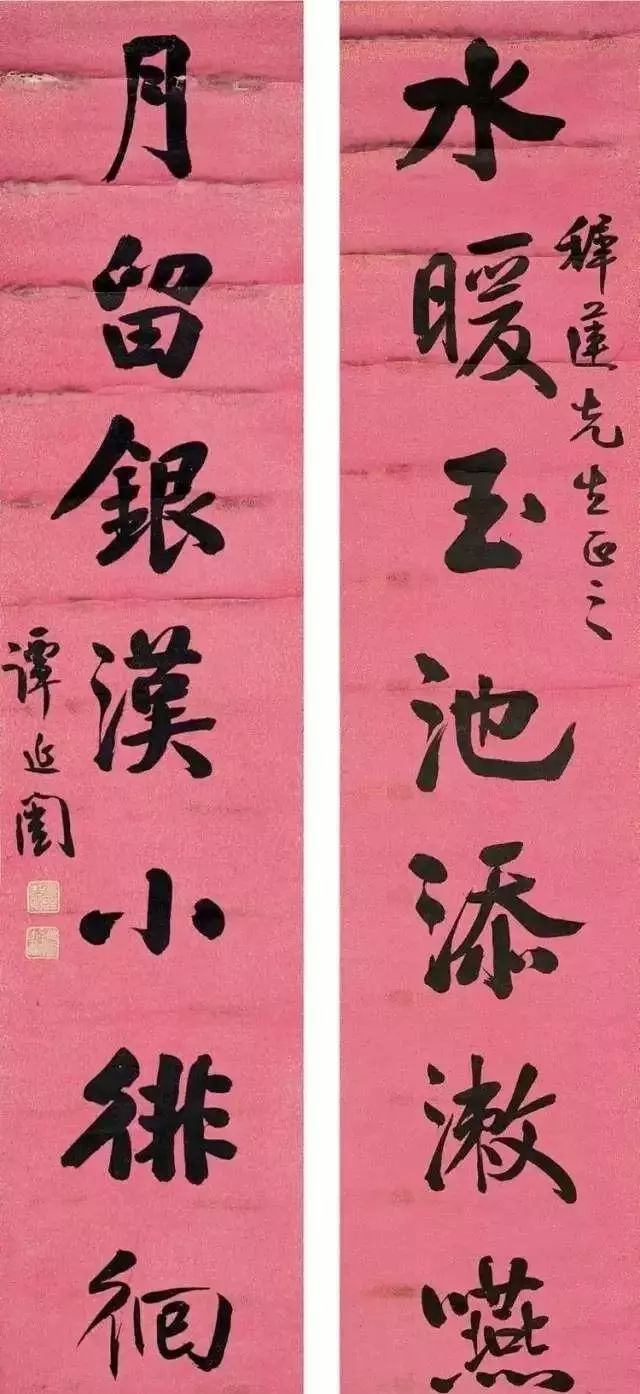 穉蓮先生正之
水暖玉池添漱嚥
月留銀漢小徘徊
譚延闓